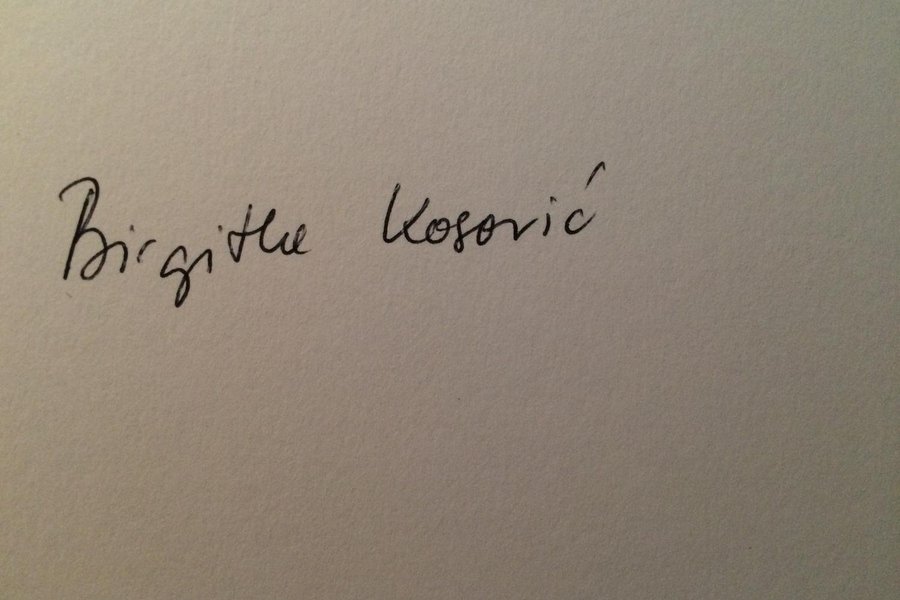 Birgitha Kosović